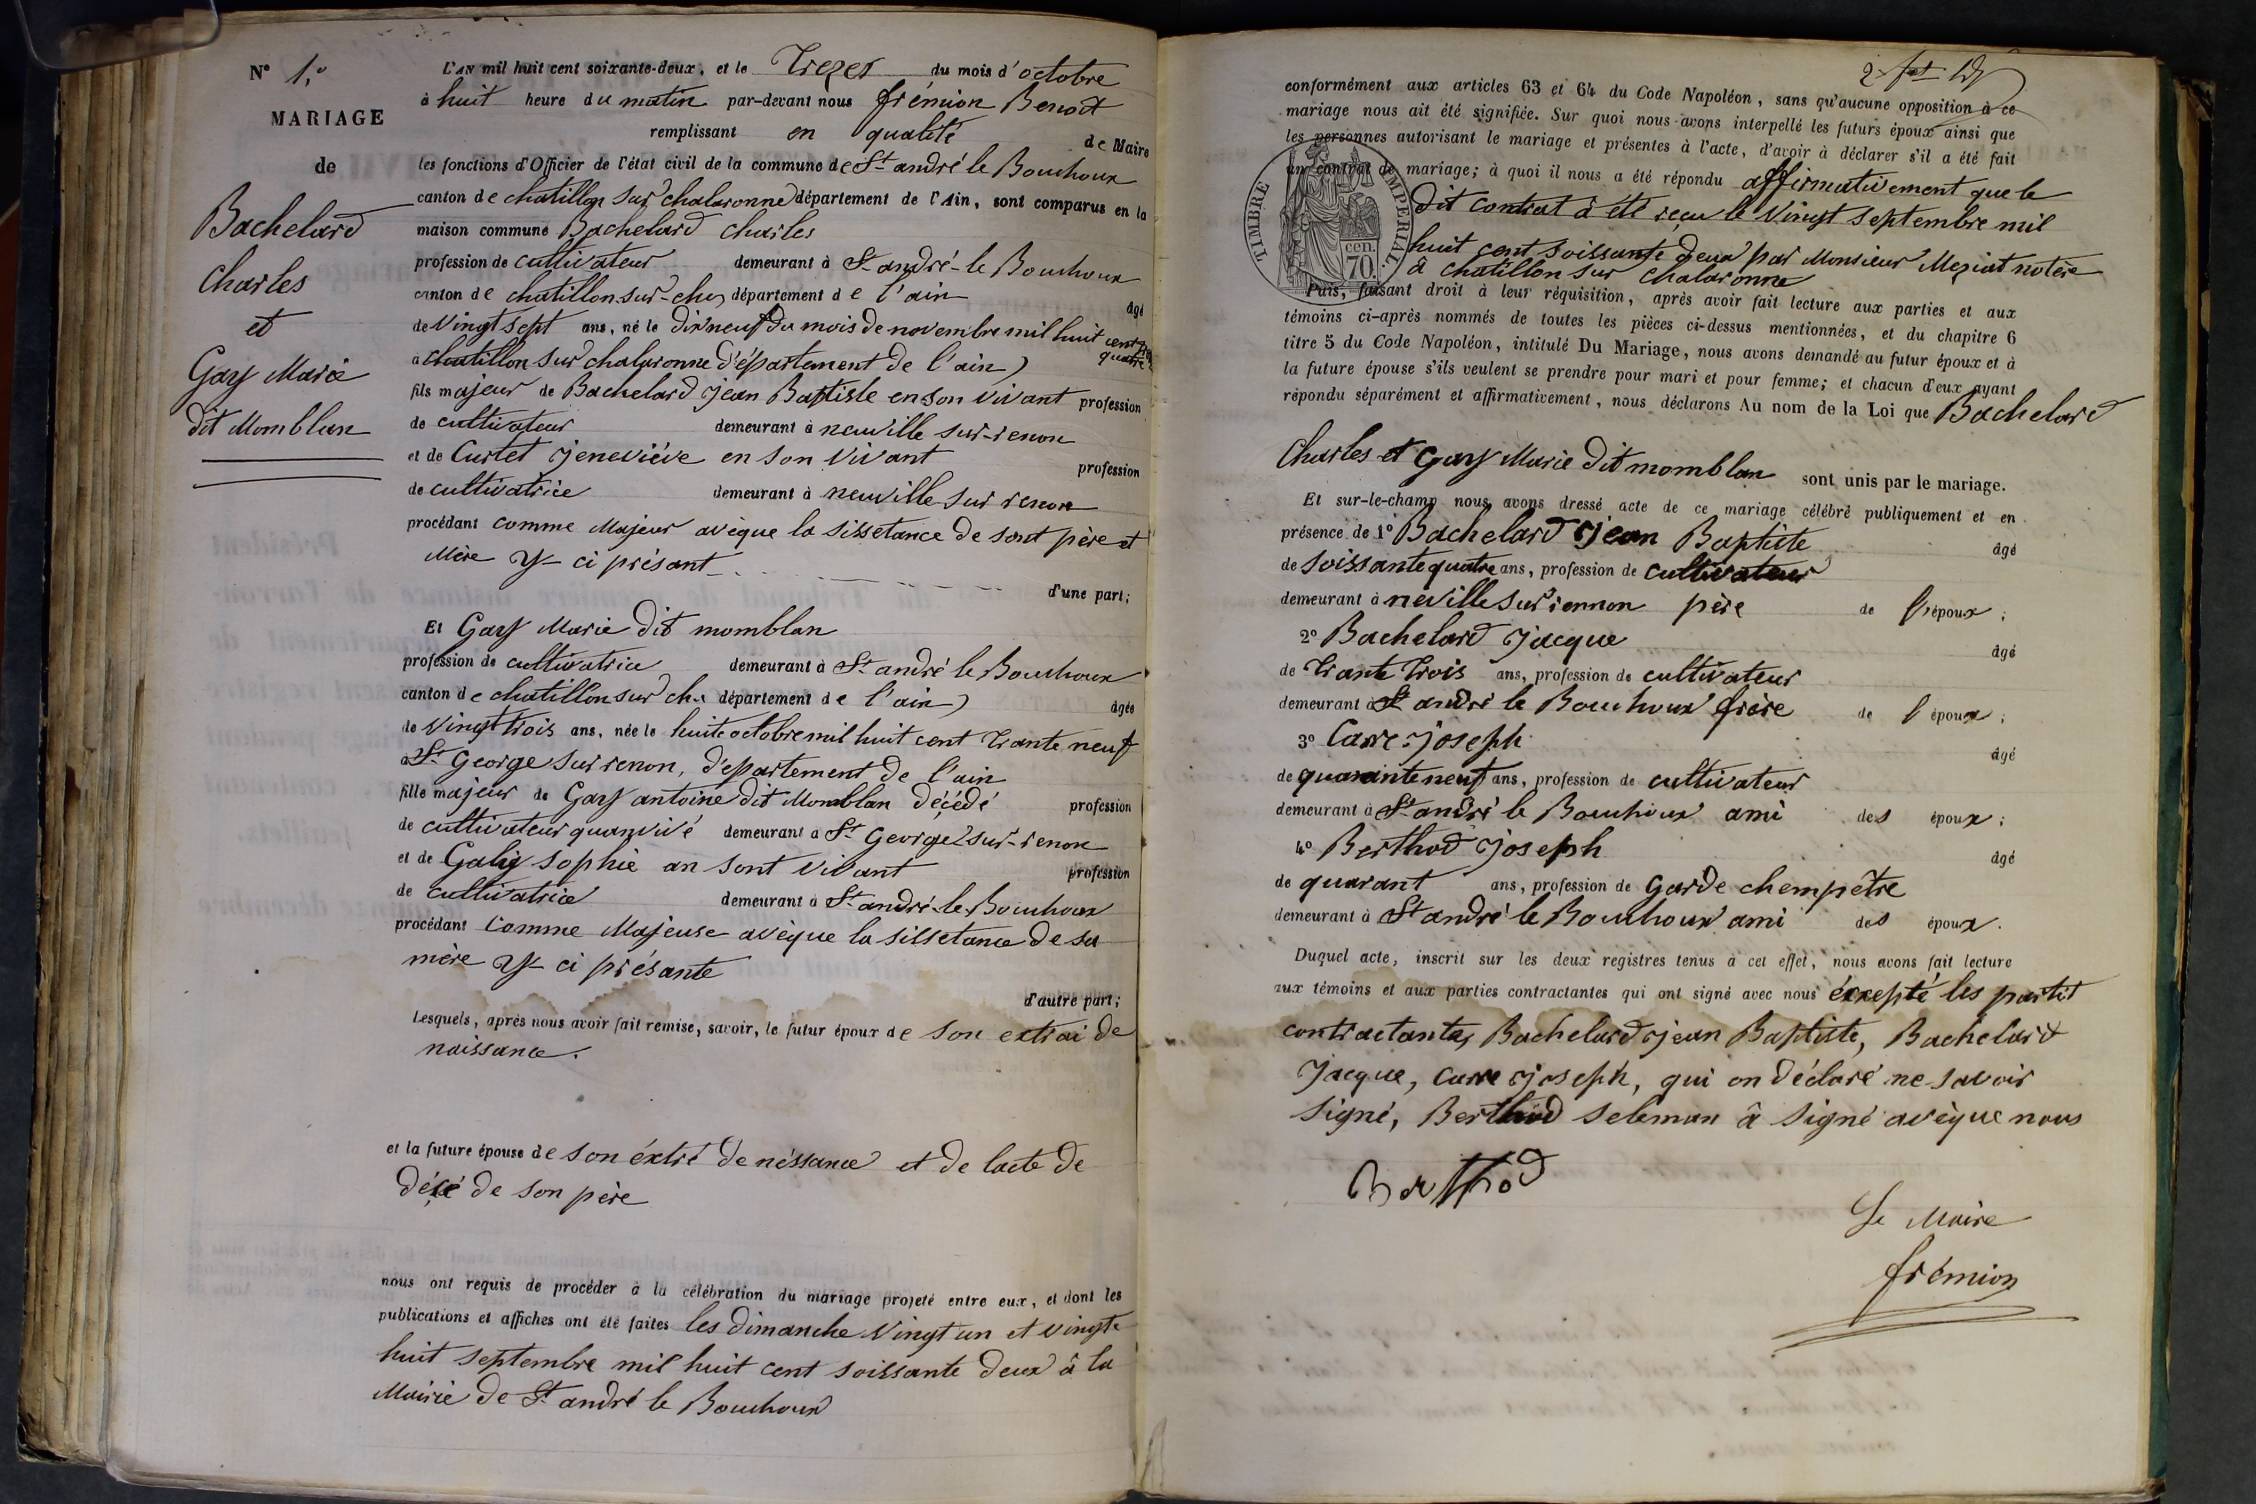 N° 1.°
MARIAGE
de
Bachelard
Charles
et
Gay Marie
dit Momblan
L'AN mil huit cent soixante-deux, et le Trezes du mois d'octobre
à huit heure du matin par-devant nous frémion Benoit
remplissant en qualité de Maire
les fonctions d'Officier de l'état civil de la commune de St andré le Bouchoux
canton de chatillon sur chalaronne département de l'Ain, sont comparus en la
maison commune Bachelard Charles
profession de cultivateur demeurant à St andré-le Bouchoux
canton de chatillon-sur-cha, département de l'ain âgé
de Vingt sept ans, né le dix neuf du mois de novembre mil huit cent quatre
à chatillon sur chalaronne d'épartement de l'ain
fils majeur de Bachelard jean Baptiste en son vivant profession
de cultivateur demeurant à neuville sur-renon
et de Curtet jeneviéve en son vivant profession
de cultivatrice demeurant à neuville sur renon
procédant comme Majeur avèque la sissetance de sont père et
Mère y ci présant
d'une part;
Et Gay Marie dit momblan
profession de cultivatrice demeurant à St andré le Bouchoux
canton de chatillon sur cha département de l'ain âgée
de Vingt trois ans, née le huite octobre mil huit cent trante neuf
à St George sur renon, d'epartement de l'ain
fille majeur de Gay antoine dit Momblan décédé profession
de cultivateur quanvivé demeurant à St George sur-renon
et de Galig sophie an sont vivant profession
de cultivatrice demeurant à St andré-le-Bouchoux
procédant comme Majeuse avèque la sissetance de sa
mère y ci présante
d'autre part;
Lesquels, après nous avoir fait remise, savoir, le futur époux de son extrai de
naissance.
et la future épouse de son éxtré de néssance et de lacte de
décé de son père
nous ont requis de procéder à la célébration du mariage projeté entre eux, et dont les
publications et affiches ont été faites les dimanche Vingt un et vingt
huit septembre mil huit cent soissante deux â la
Mairie de St andré le Bouchoux
conformément aux articles 63 et 64 du Code Napoléon, sans qu'aucune opposition à ce
mariage nous ait été signifiée. Sur quoi nous avons interpellé les futurs époux ainsi que
les personnes autorisant le mariage et présentes à l'acte, d'avoir à déclarer s'il a été fait
un contrat de mariage; à quoi il nous a été répondu affirmativement que le
dit contrat â été reçu le Vingt septembre mil
huit cent soissante deux par Monsieur Meziat notère
â chatillon sur chalaronne
TIMBRE IMPERIAL
70 cen.
Puis, faisant droit à leur réquisition, après avoir fait lecture aux parties et aux
témoins ci-après nommés de toutes les pièces ci-dessus mentionnées, et du chapitre 6
titre 5 du Code Napoléon, intitulé Du Mariage, nous avons demandé au futur époux et à
la future épouse s'ils veulent se prendre pour mari et pour femme; et chacun d'eux ayant
répondu séparément et affirmativement, nous déclarons Au nom de la Loi que Bachelard
Charles et Gay Marie dit momblan sont unis par le mariage.
Et sur-le-champ nous avons dressé acte de ce mariage célébré publiquement et en
présence de 1° Bachelard jean Baptiste âgé
de soissante quatre ans, profession de cultivateur
demeurant à neville sur rennon père de l'époux;
2° Bachelard jacque âgé
de trante trois ans, profession de cultivateur
demeurant à St andré le Bouchoux frère de l'époux;
3° Carre joseph âgé
de quarante neuf ans, profession de cultivateur
demeurant à St andré le Bouchoux ami des époux;
4° Berthod joseph âgé
de quarant ans, profession de Garde chempêtre
demeurant à St andré le Bouchoux ami des époux.
Duquel acte, inscrit sur les deux registres tenus à cet effet, nous avons fait lecture
aux témoins et aux parties contractantes qui ont signé avec nous éxcepté les partit
contractantes Bachelard jean Baptiste, Bachelard
Jacque, Carre joseph, qui on déclaré ne savoir
signé, Berthod seleman â signé avèque nous
Berthod
Le Maire
frémion